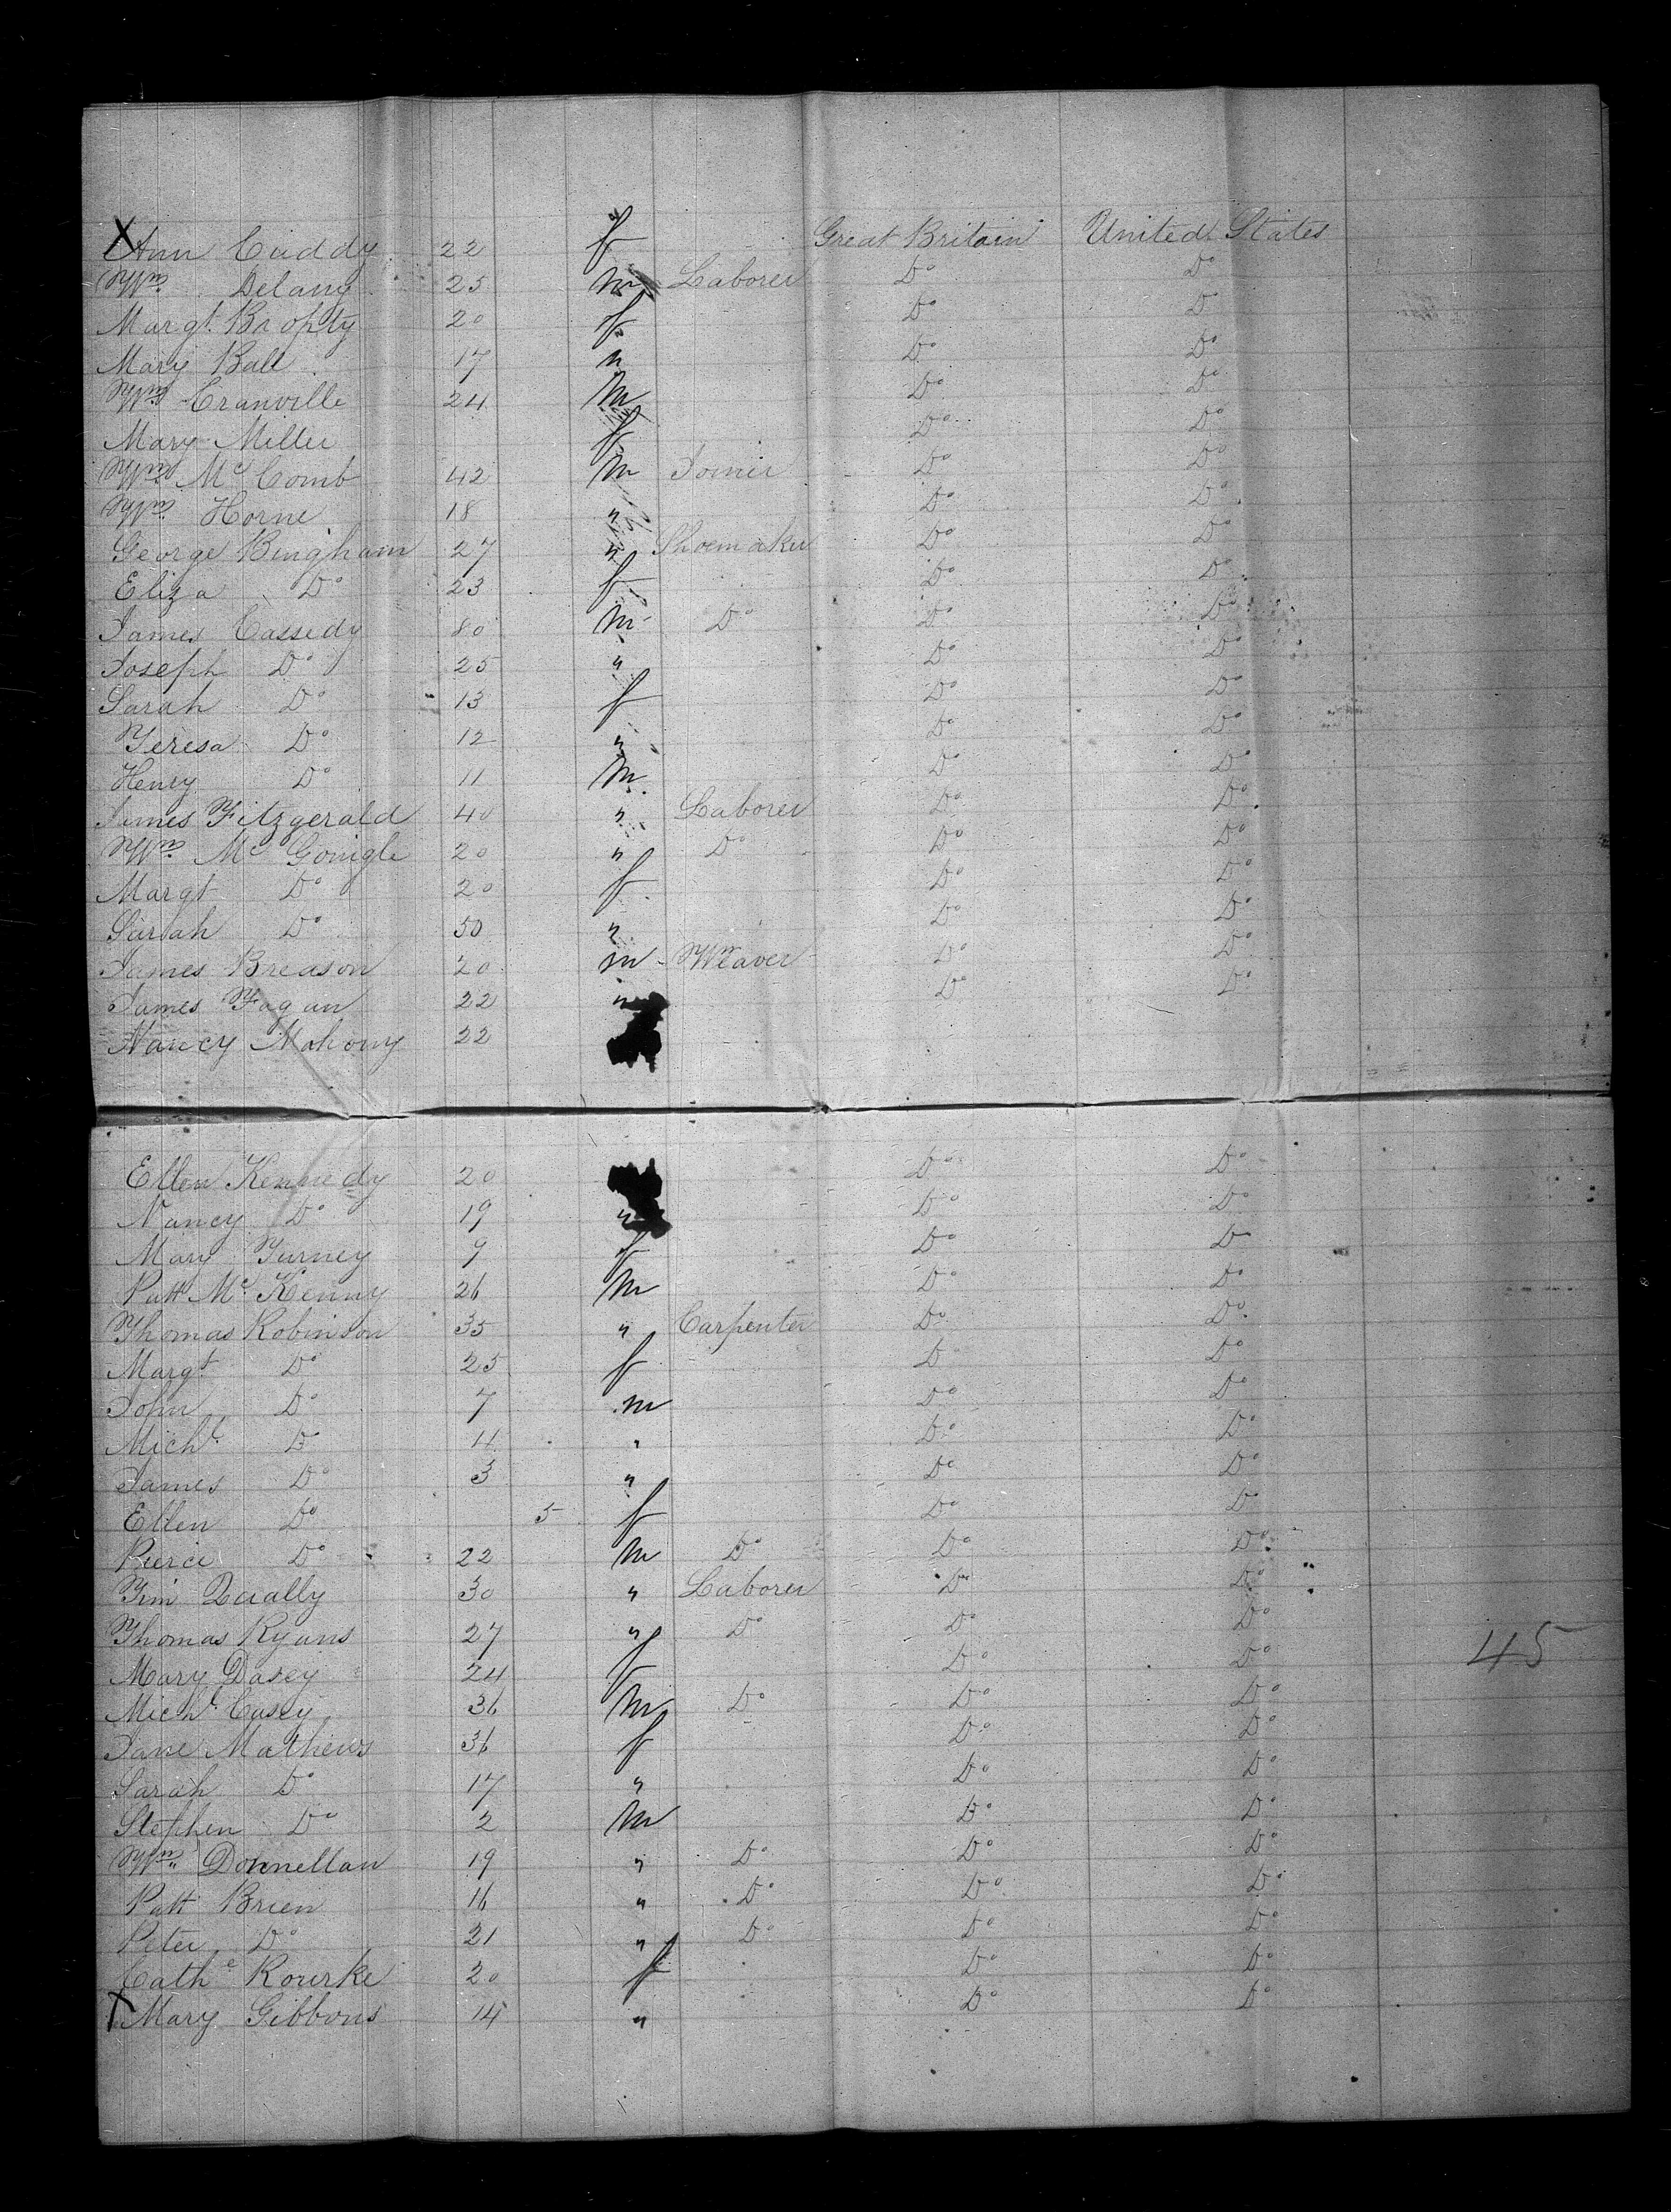 X Ann Cuddy 22 f Great Britain United States
Wm Delany 25 m Laborer Do Do
Margt. Brophy 20 f Do Do
Mary Ball 17 " Do Do
Wm Cranville 24 m Do Do
Mary Miller f Do Do
Wm McComb 42 m Joiner Do Do
Wm Horne 18 " Do Do
George Bingham 27 " Shoemaker Do Do
Eliza Do 23 f Do Do
James Cassedy 80 m Do Do Do
Joseph Do 25 " Do Do
Sarah Do 13 f Do Do
Teresa Do 12 " Do Do
Henry Do 11 m Do Do
James Fitzgerald 40 " Laborer Do Do
Wm McGonigle 20 " Do Do Do
Margt Do 20 f Do Do
Sarah Do 50 " Do Do
James Breason 20 m Weaver Do Do
James Fagan 22 " Do Do
Nancy Mahony 22
Ellen Kennedy 20 Do Do
Nancy Do 19 " Do Do
Mary Turney 7 f Do Do
Patt McKenny 26 m Do Do
Thomas Robinson 35 " Carpenter Do Do
Margt Do 25 f Do Do
John Do 7 m Do Do
Michl Do 4 " Do Do
James Do 3 " Do Do
Ellen Do 5 f Do Do
Pierce Do 22 m Do Do Do
Tim Qually 30 " Laborer Do Do
Thomas Ryans 27 " Do Do Do
Mary Dasey 24 f Do Do 45
Michl Casey 36 m Do Do Do
Jane Mathews 36 f Do Do
Sarah Do 17 " Do Do
Stephen Do 2 m Do Do
Wm Donnellan 19 " Do Do Do
Patt Brien 16 " Do Do Do
Peter Do 21 " Do Do Do
Cathe Rourke 20 f Do Do
X Mary Gibbons 14 " Do Do